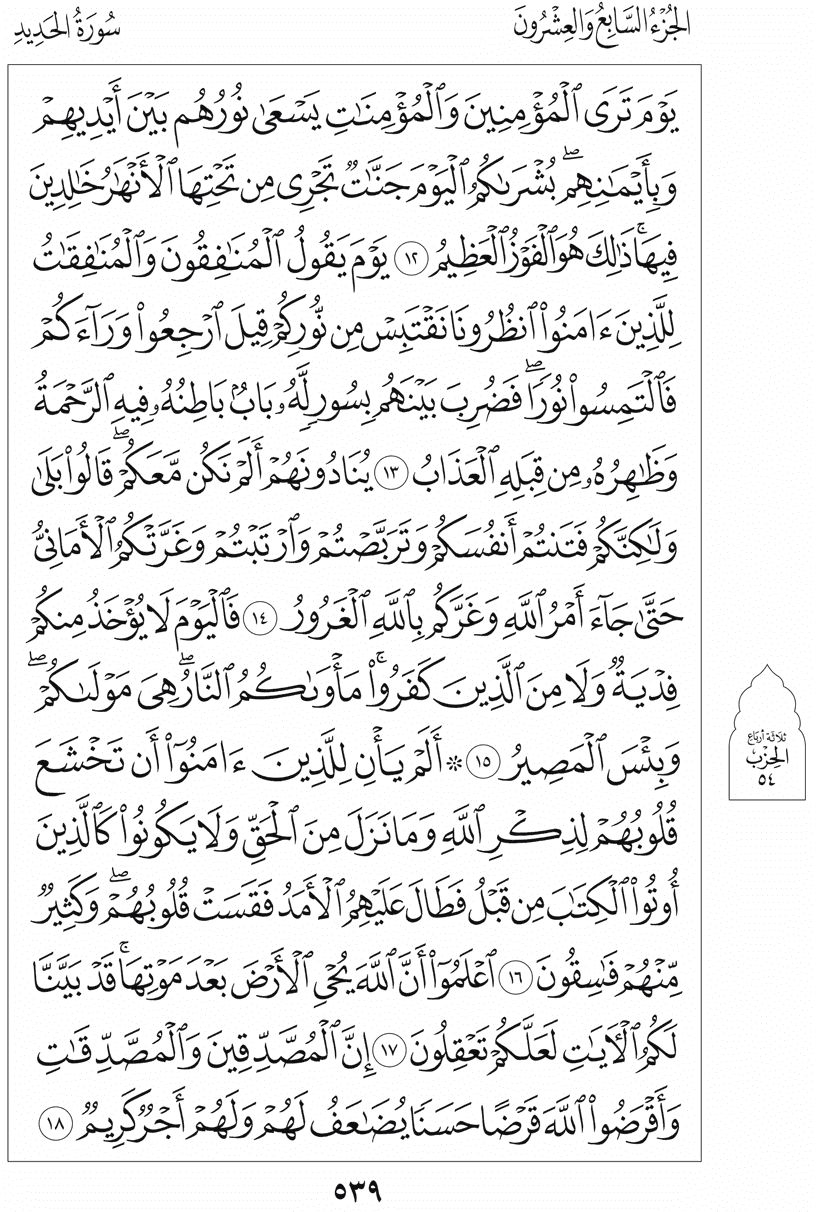 الجُزْءُ السَّابِعُ وَالعِشْرُونَ
سُورَةُ الحَدِيدِ
يَوْمَ تَرَى ٱلْمُؤْمِنِينَ وَٱلْمُؤْمِنَٰتِ يَسْعَىٰ نُورُهُم بَيْنَ أَيْدِيهِمْ
وَبِأَيْمَٰنِهِمۖ بُشْرَىٰكُمُ ٱلْيَوْمَ جَنَّٰتٌ تَجْرِى مِن تَحْتِهَا ٱلْأَنْهَٰرُ خَٰلِدِينَ
فِيهَاۚ ذَٰلِكَ هُوَ ٱلْفَوْزُ ٱلْعَظِيمُ ١٢ يَوْمَ يَقُولُ ٱلْمُنَٰفِقُونَ وَٱلْمُنَٰفِقَٰتُ
لِلَّذِينَ ءَامَنُوا۟ ٱنظُرُونَا نَقْتَبِسْ مِن نُّورِكُمْ قِيلَ ٱرْجِعُوا۟ وَرَآءَكُمْ
فَٱلْتَمِسُوا۟ نُورًاۖ فَضُرِبَ بَيْنَهُم بِسُورٍ لَّهُۥ بَابٌۢ بَاطِنُهُۥ فِيهِ ٱلرَّحْمَةُ
وَظَٰهِرُهُۥ مِن قِبَلِهِ ٱلْعَذَابُ ١٣ يُنَادُونَهُمْ أَلَمْ نَكُن مَّعَكُمْۖ قَالُوا۟ بَلَىٰ
وَلَٰكِنَّكُمْ فَتَنتُمْ أَنفُسَكُمْ وَتَرَبَّصْتُمْ وَٱرْتَبْتُمْ وَغَرَّتْكُمُ ٱلْأَمَانِىُّ
حَتَّىٰ جَآءَ أَمْرُ ٱللَّهِ وَغَرَّكُم بِٱللَّهِ ٱلْغَرُورُ ١٤ فَٱلْيَوْمَ لَا يُؤْخَذُ مِنكُمْ
فِدْيَةٌ وَلَا مِنَ ٱلَّذِينَ كَفَرُوا۟ۚ مَأْوَىٰكُمُ ٱلنَّارُۖ هِىَ مَوْلَىٰكُمْۖ
وَبِئْسَ ٱلْمَصِيرُ ١٥ ۞ أَلَمْ يَأْنِ لِلَّذِينَ ءَامَنُوٓا۟ أَن تَخْشَعَ
قُلُوبُهُمْ لِذِكْرِ ٱللَّهِ وَمَا نَزَلَ مِنَ ٱلْحَقِّ وَلَا يَكُونُوا۟ كَٱلَّذِينَ
أُوتُوا۟ ٱلْكِتَٰبَ مِن قَبْلُ فَطَالَ عَلَيْهِمُ ٱلْأَمَدُ فَقَسَتْ قُلُوبُهُمْۖ وَكَثِيرٌ
مِّنْهُمْ فَٰسِقُونَ ١٦ ٱعْلَمُوٓا۟ أَنَّ ٱللَّهَ يُحْىِ ٱلْأَرْضَ بَعْدَ مَوْتِهَاۚ قَدْ بَيَّنَّا
لَكُمُ ٱلْءَايَٰتِ لَعَلَّكُمْ تَعْقِلُونَ ١٧ إِنَّ ٱلْمُصَّدِّقِينَ وَٱلْمُصَّدِّقَٰتِ
وَأَقْرَضُوا۟ ٱللَّهَ قَرْضًا حَسَنًا يُضَٰعَفُ لَهُمْ وَلَهُمْ أَجْرٌ كَرِيمٌ ١٨
ثَلَاثَةُ أَرْبَاع
الحِزْب
٥٤
٥٣٩